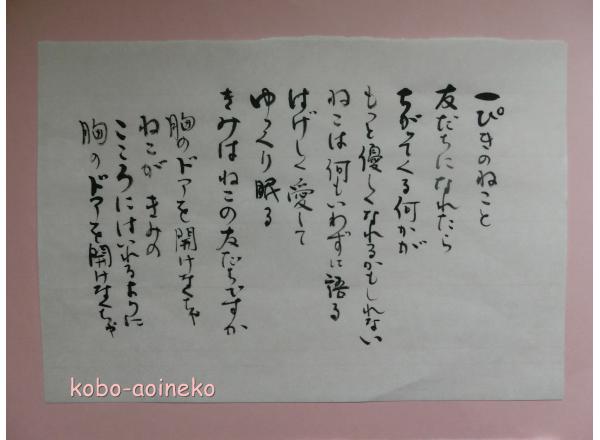 一ぴきのねこと
友だちになれたら
ちがってくる何かが
もっと優しくなれるかもしれない
ねこは何もいわずに語る
はげしく愛して
ゆっくり眠る
きみはねこの友だちですか
胸のドアを開けなくちゃ
ねこが きみの
こころにはいれるように
胸のドアを開けなくちゃ
kobo-aoineko